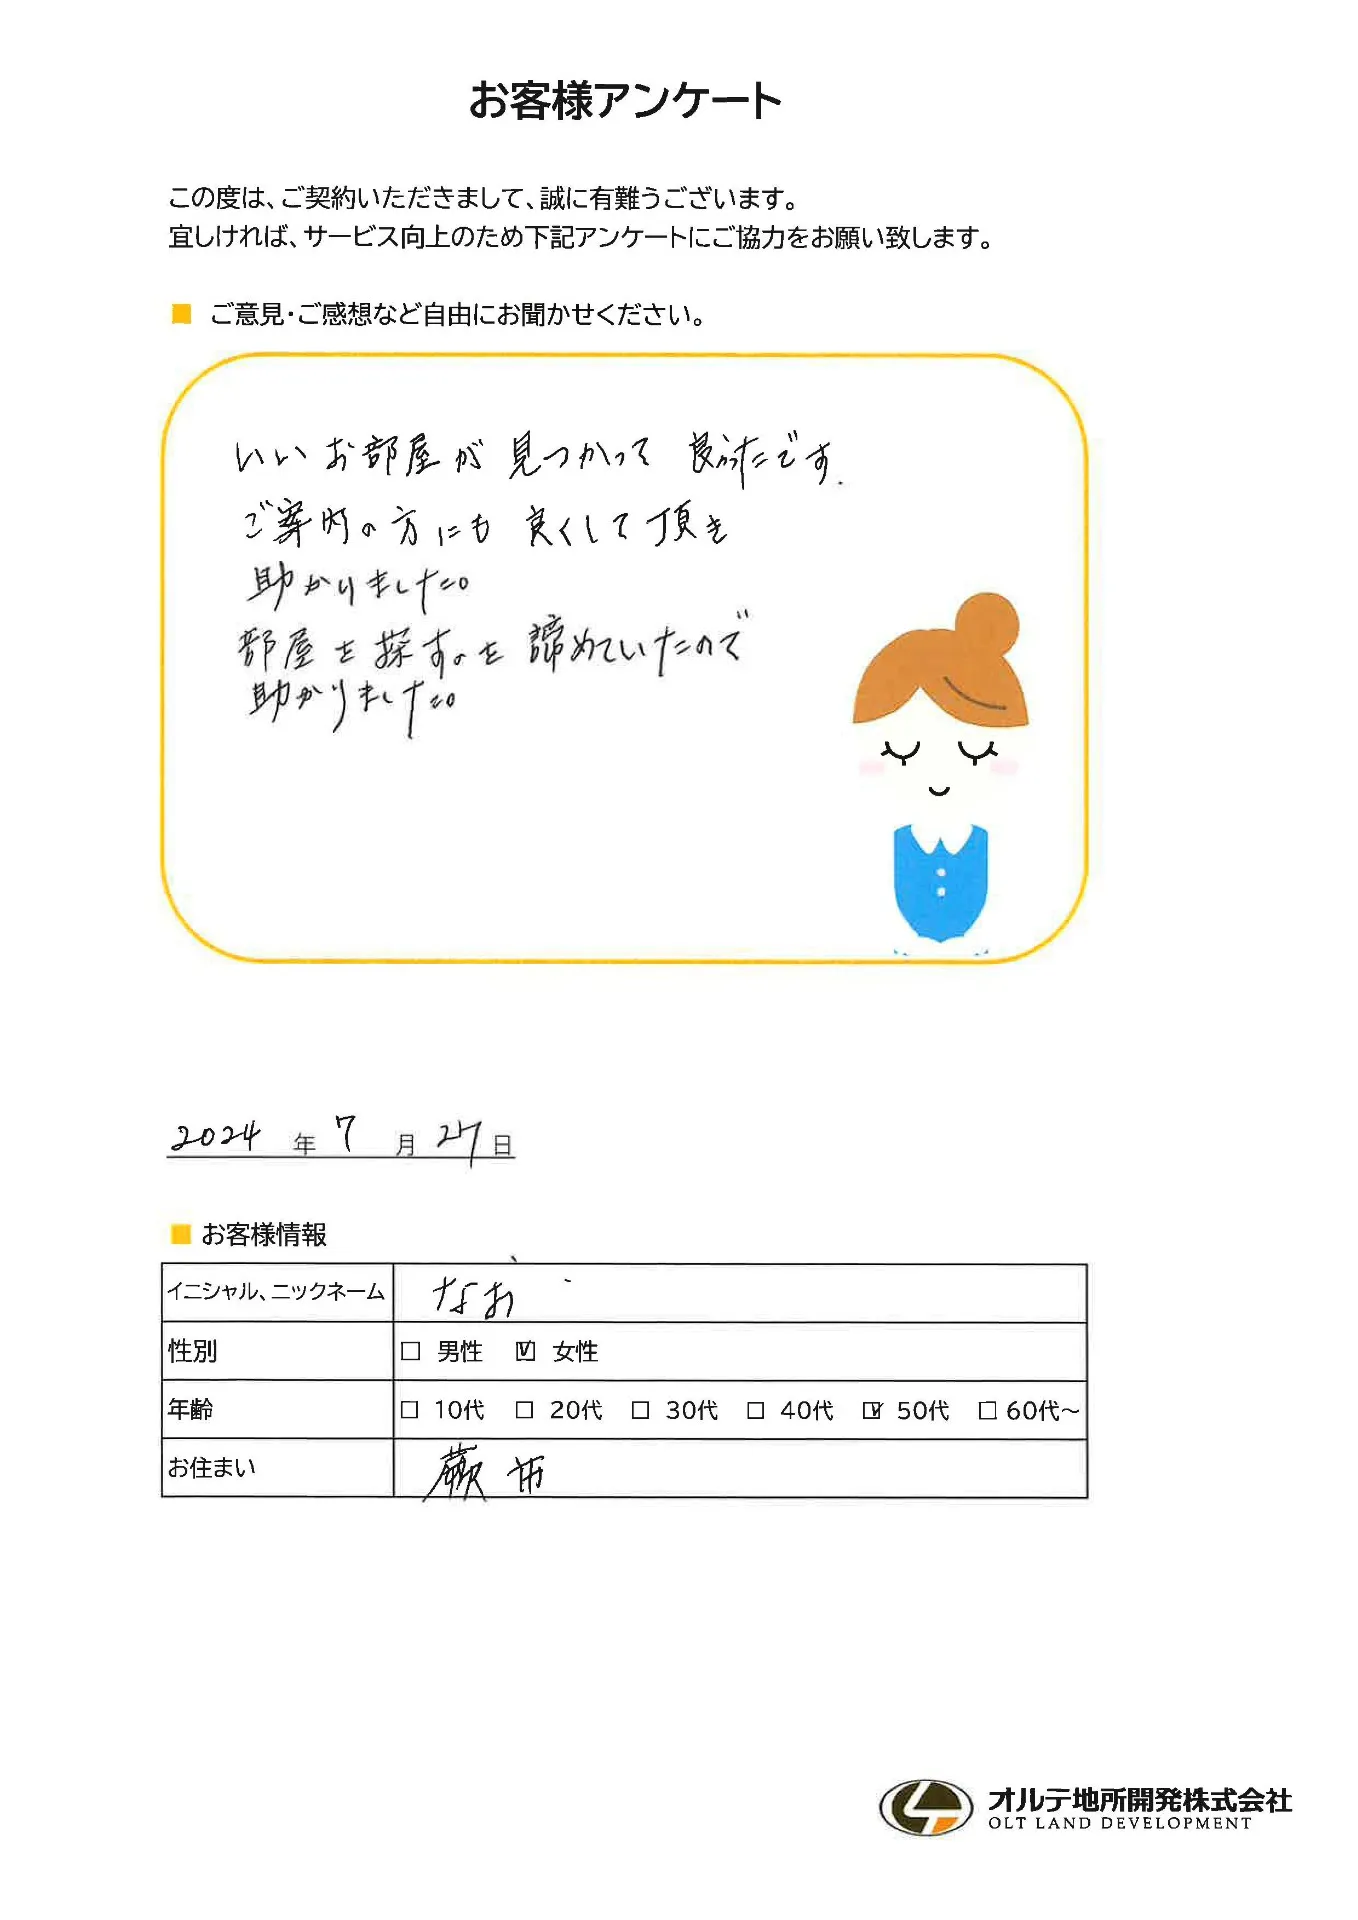 お客様アンケート
この度は、ご契約いただきまして、誠に有難うございます。
宜しければ、サービス向上のため下記アンケートにご協力をお願い致します。
■ ご意見・ご感想など自由にお聞かせください。
いいお部屋が見つかって良かったです.
ご案内の方にも良くして頂き
助かりました。
部屋を探すのを諦めていたので
助かりました。
2024 年 7 月 27 日
■ お客様情報
イニシャル、ニックネーム なお
性別 □ 男性 ☑ 女性
年齢 □ 10代 □ 20代 □ 30代 □ 40代 ☑ 50代 □ 60代~
お住まい 蕨市
オルテ地所開発株式会社
OLT LAND DEVELOPMENT